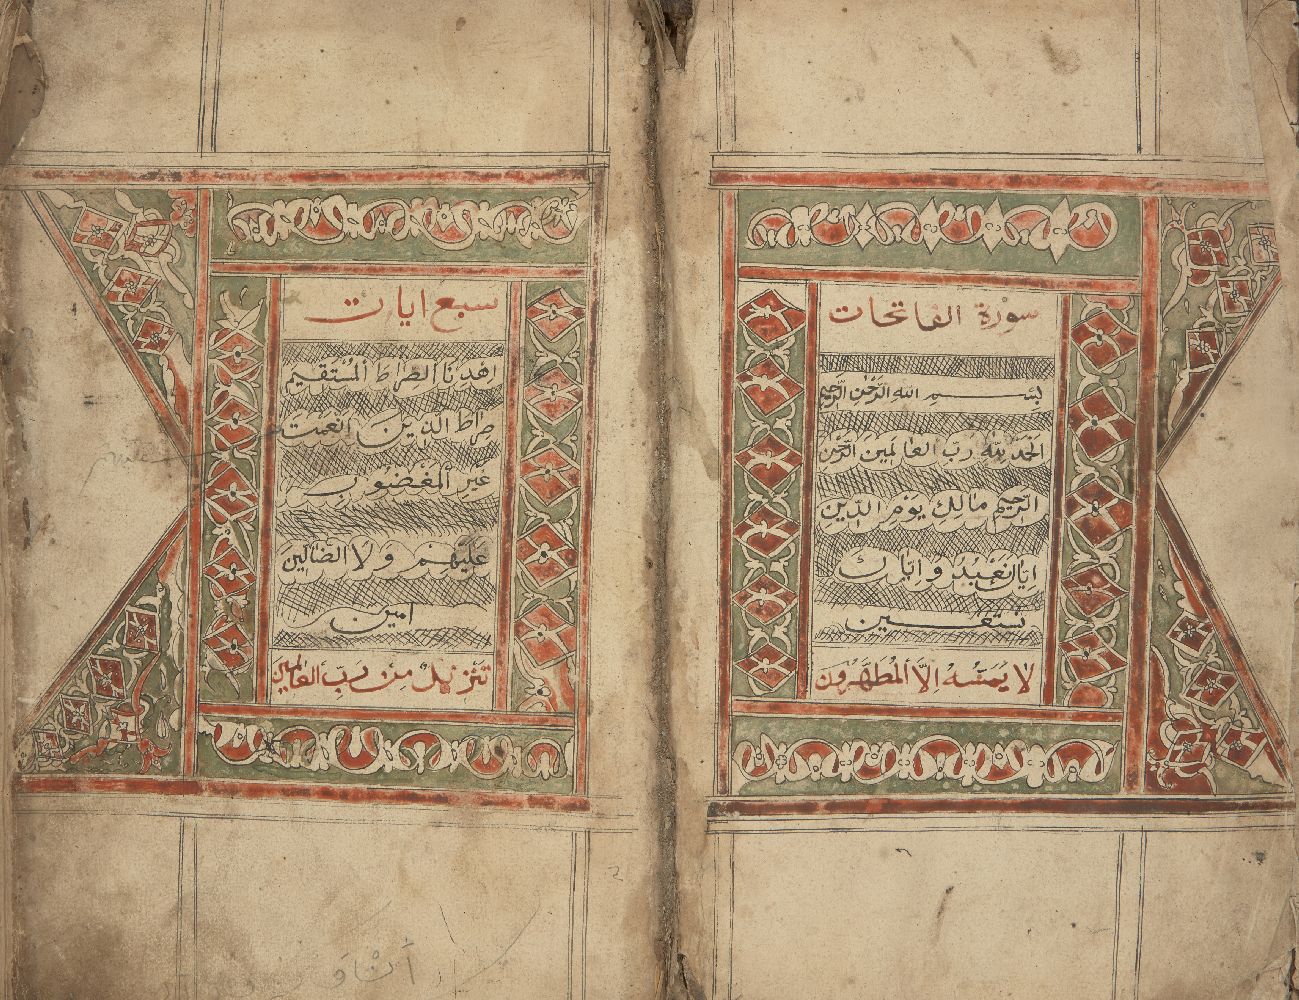 سورة الفاتحات
بِسْمِ الله الرَّحْمٰنِ الرَّحِيمِ
اَلْحَمْدُ لِلّٰهِ رَبِّ الْعَالَمِينَ الرَّحْمٰنِ
الرَّحِيمِ مَالِكِ يَوْمِ الدِّينِ
اِيَّاكَ نَعْبُدُ وَاِيَّاكَ
نَسْتَعِينُ
لَا يَمَسُّهُ اِلَّا الْمُطَهَّرُونَ
سبع ايات
اهْدِنَا الصِّرَاطَ الْمُسْتَقِيمَ
صِرَاطَ الَّذِينَ اَنْعَمْتَ
غَيْرِ الْمَغْضُوبِ
عَلَيْهِمْ وَلَا الضَّالِّينَ
امين
تَنْزِيلٌ مِنْ رَبِّ الْعَالَمِينَ